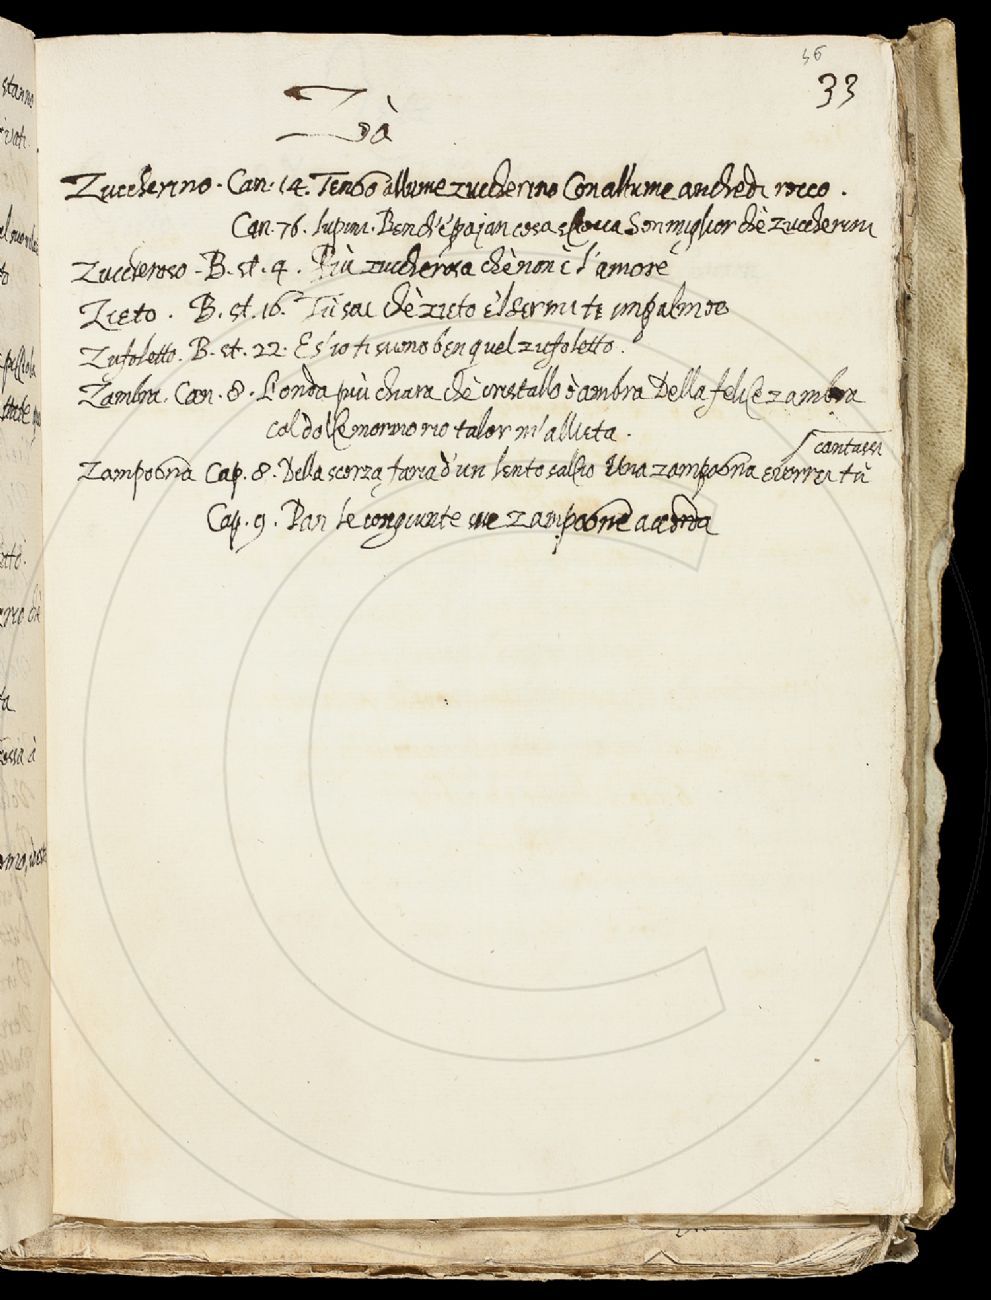 56
33
Zà
Zuccherino. Can. 14. Tengo allume zuccherino Con allume anche di rocco.
Can. 76. lupini. Bench'é pajan cosa Son miglior chè zuccherini
Zuccheroso - B. st. 4. Più zucherosa chè non è l'amore
Zieto. B. st. 16. Tù sai chè zieto è'l ser mi te impalmoe
Zufoletto. B. st. 22. E s'io ti suono ben quel zufoletto.
Zambra. Can. 8. L'onda più chiara chè cristallo ò ambra Della felice zambra
col dolce mormorio talor m'alluta.
cantassi
Zampogna Cap. 8. Della scorza farìa d'un lento salcio Una zampogna e vorrei tù
Cap. 9. Pan le congiunte sue zampogne accorda